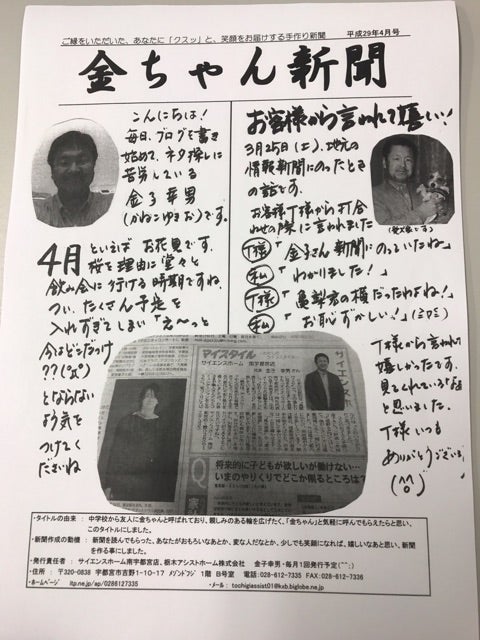 ご縁をいただいた、あなたに「クスッ」と、笑顔をお届けする手作り新聞
平成29年4月号
金ちゃん新聞
こんにちは!
毎日、ブログを書き
始めて、ネタ探しに
苦労している
金子幸男
(かねこゆきお)です。
4月
といえば お花見です。
桜を理由に堂々と
飲み会に行ける時期ですね。
つい、たくさん予定を
入れすぎてしまい "え〜っと
今はどこだっけ
??(°д°)
とならない
よう気を
つけて
くださいね
お客様から言われて嬉しい!
3月25日(土)、地元の
情報新聞にのったとき
の話です。
お客様T様から打合
わせの際に言われました
T様「金子さん新聞にのっていたね」
私「わかりました!」
T様「亀梨君の横だったわよね!」
私「お恥ずかしい!」
T様から言われて
嬉しかったです。
見てくれている
と思いました。
T様いつも
ありがとうございます
マイスタイル
サイエンスホーム 南宇都宮店
代表 金子 幸男さん
サイエンスホ
Q
将来的に子どもが欲しいが働けない…
いまのやりくりでどこか削るところは?
・タイトルの由来 : 中学校から友人に金ちゃんと呼ばれており、親しみのある輪を広げたく、「金ちゃん」と気軽に呼んでもらえたらと思い、
このタイトルにしました。
・新聞作成の動機 : 新聞を読んでもらった、あなたがおもろいなあとか、変な人だなとか、少しでも笑顔になれば、嬉しいなあと思い、新聞
を作る事にしました。
・発行責任者 : サイエンスホーム南宇都宮店、栃木アシストホーム株式会社 金子幸男・毎月1回発行予定(^-^;)
・住所 : 〒320-0838 宇都宮市吉野1-10-17 メゾンドフジ 1階 B号室 電話:028-612-7335 FAX:028-612-7336
・ホームページ itp.ne.jp/ap/0286127335 ・メール: tochigiassist01@kxb.biglobe.ne.jp